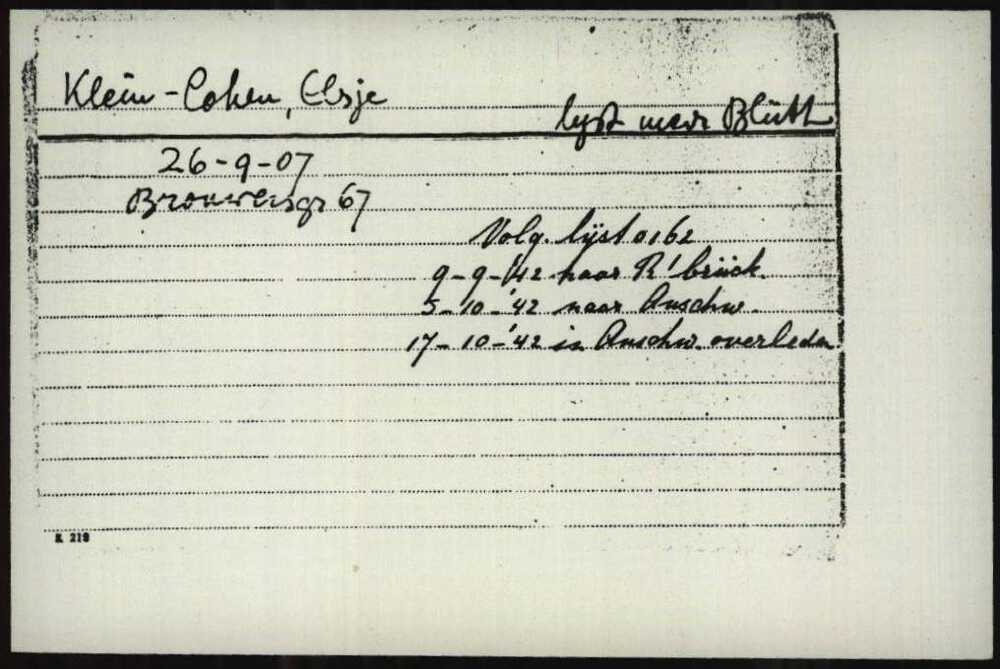 Klein-Cohen, Elsje
lyst mevr Blüth
26-9-07
Brouwersgr 67
Volg. lijst 0162
9-9-'42 naar R'brück
5-10-'42 naar Auschw.
17-10-'42 in Auschw. overleden
K 219